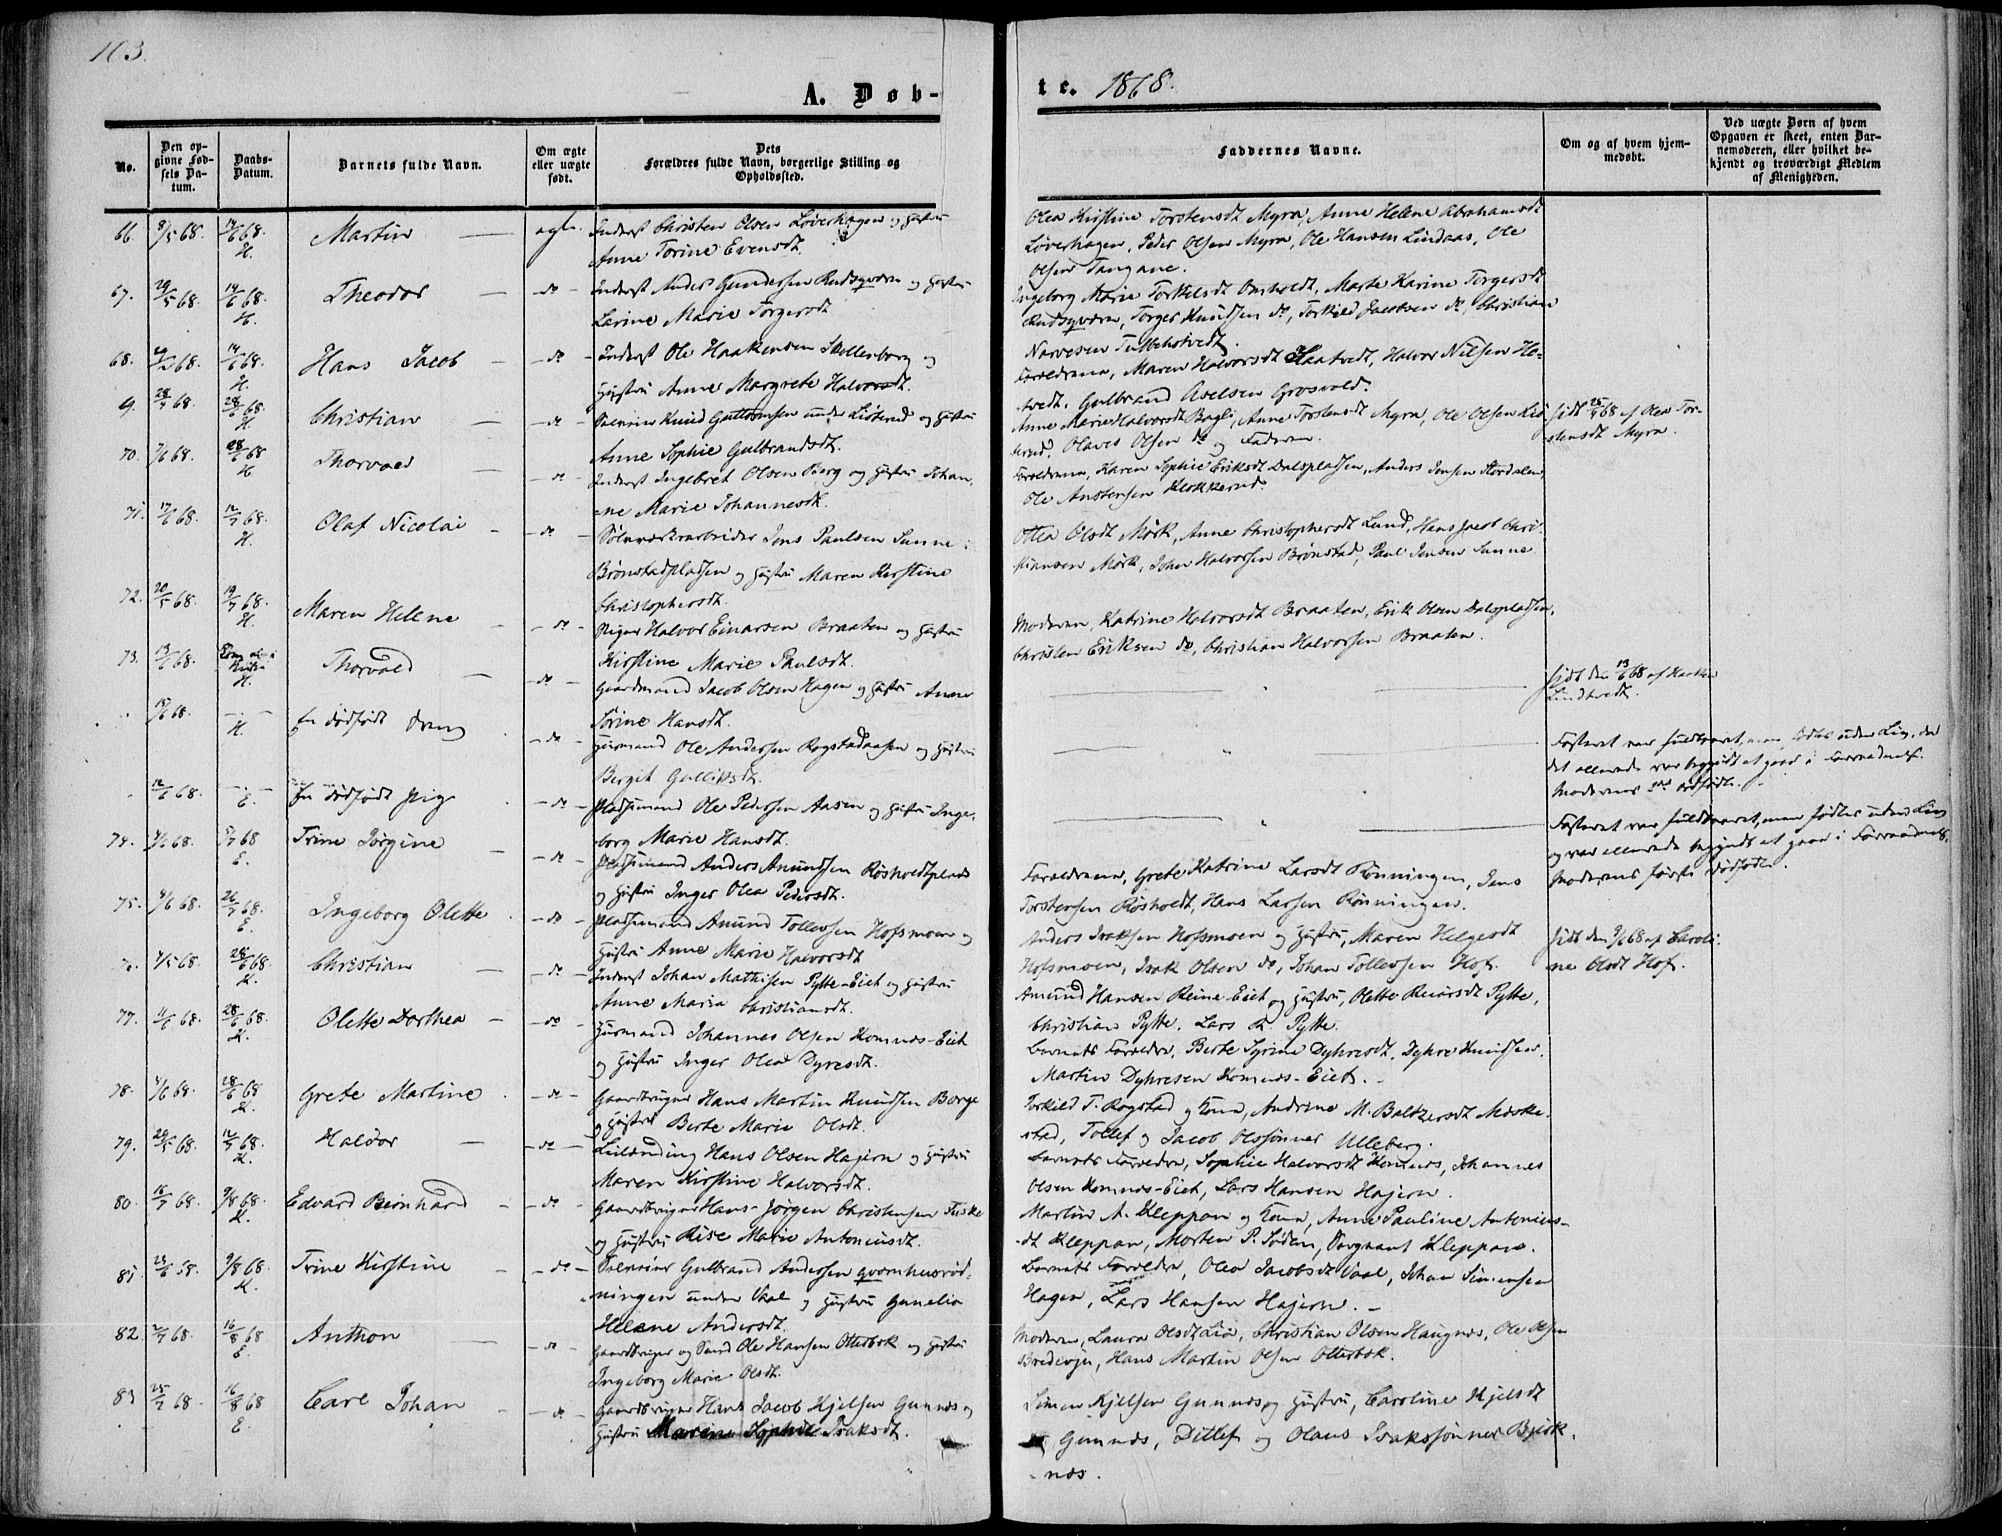 103.
A. Døb-
te. 1868.
No.
Den opgivne Fødsels Datum.
Daabs-Datum.
Barnets fulde Navn.
Om ægte eller uægte født.
Dets Forældres fulde Navn, borgerlige Stilling og Opholdssted.
Faddernes Navne.
Om og af hvem hjemmedøbt.
Ved uægte Børn af hvem Opgaven er skeet, enten Barnemoderen, eller hvilket bekjendt og troværdigt Medlem af Menigheden.
66. 8/5 68. 14/6 68. H. Martin — ægte. Inderst Christen Olsen Løverhagen og Hustru
Anne Torine Evensdt.
Olea Kirstine Torstensdt Myra, Anne Helene Abrahamsdt
Løverhagen, Peder Olsen Myra, Ole Hansen Lindaas, Ole
Olsen Tangane.
67. 29/5 68. 14/6 68. H. Theodor — do — Inderst Anders Gundersen Rudsqværn og Hustru
Larine Marie Torgersdt
Ingeborg Marie Torkelsdt Omholdt, Marte Karine Torgersdt
Rudsqværn, Torger Knudsen do, Torkild Jacobsen do, Christian
Narvesen
68. 14/6 68. H. Hans Jacob — do — Inderst Ole Haakensen Skollenborg og
Hustru Anne Margrete Halvorsdt.
Forældrene, Maren Halvorsdt Haatvedt, Halvor Nilsen Ho-
tvedt, Gulbrand Axelsen Grosvold.
69. 28/6 68. H Christian — do — Knud Guttormsen under og Hustru
Anne Sophie Gulbrandsdt.
Anne Marie Halvorsdt Bagli, Anne Torstensdt Myra, Ole Olsen
Olaves Olsen do og Faderen.
68 af Olea Tor-
stensdt Myra.
70. 7/6 68. 28/6 68 H Thorvald — do — Inderst Ingebret Olsen Berg og Hustru Johan-
ne Marie Johannesdt.
Forældrene, Karen Sophie Eriksdt Dalspladsen, Anders Jensen Stordalen,
Ole Anstensen Klokkerud.
71. 17/6 68. 12/7 68. H. Olaf Nicolai — do — Sølvværksarbeider Jens Paulsen Sunne i
Brønstadpladsen og Hustru Maren Kirstine
Christophersdt.
Olea Olsdt Mørk, Anne Christophersdt Lund, Hans Jacob Chri-
stiansen Mørk, Johan Halvorsen Brønstad, Paul Jensen Sunne
72. 20/5 68. 19/7 68. H. Maren Helene — do — Halvor Einarsen Braaten og Hustru
Kirstine Marie Paulsdt.
Moderen, Katrine Halvorsdt Braaten, Erik Olsen Dalspladsen,
Christen Eriksen do, Christian Halvorsen Braaten.
73. 13/6 68. H. Thorvald — do — Gaardmand Jacob Olsen Hagen og Hustru Anne
Torine Hansdt.
Hjdt den 13/6 68 af
Lindtvedt.
15/6 68. — H. En dødfødt Dreng — do — Huusmand Ole Andersen Rogstadaasen og Hustru
Bergit Gulliksdt.
Fosteret var fuldbaaret, men fødtes uden Liv, da
det allerede var begyndt at gaae i Forraadnelse.
Moderens 2de dødfødte.
12/6 68. — E. En dødfødt Pige — do — Pladsmand Ole Pedersen Aasen og Hustru Inge-
borg Marie Hansdt.
Fosteret var fuldbaaret, men fødtes uden Liv
og var allerede begyndt at gaae i Forraadnelse.
Moderens første dødfødte.
74. 5/7 68 E. Trine Jørgine — do — Pladsmand Anders Amundsen Røsholdtplads
og Hustru Inger Olea Pedersdt.
Forældrene, Grete Katrine Larsdt Rønningen, Jens
Torstensen Røsholdt, Hans Larsen Rønningen.
75. 4/6 68. 26/7 68. E. Ingeborg Olette — do — Pladsmand Amund Tollevsen Hofsmoen og
Hustru Anne Marie Halvorsdt
Anders Isaksen Hofsmoen og Hustru, Maren Helgesdt
Hofsmoen, Isak Olsen do, Johan Tollevsen Hof.
Hjdt den 9/6 68 af Caroli-
ne Olsdt Hof.
76. 7/5 68. 28/6 68. K. Christian — do — Inderst Johan Mathisen Pytte-Eiet og Hustru
Anne Maria Christiansdt.
Amund Hansen Reine-Eiet og Hustru, Olette Reiersdt Pytte,
Christian Pytte, Lars K. Pytte.
77. 11/6 68. 28/6 68. K. Olette Dorthea — do — Huusmand Johannes Olsen Komnæs-Eiet
og Hustru Inger Olea Dyresdt.
Barnets Forældre, Berte Syrine Dyhresdt, Dyhre Knudsen,
Martin Dyhresen Komnæs-Eiet. —
78. 4/6 68. 28/6 68 K. Grete Martine — do — Gaardbruger Hans Martin Knudsen Borge
og Hustru Berte Marie Olsdt.
Torkild T. Rogstad og Kone, Andrine M. Baltzersdt Mæske-
stad, Tollef og Jacob Olssønner Ulleberg.
79. 29/5 68. 12/7 68. K. Halvor — do — Leilænding Hans Olsen Hajern og Hustru
Maren Kirstine Halvorsdt.
Barnets Forældre, Sophie Halvorsdt Komnæs, Johannes
Olsen Komnæs-Eiet, Lars Hansen Hajern.
80. 18/7 68. 9/8 68. K. Edvard Bernhard — do — Gaardbruger Hans Jørgen Christensen Fiske
og Hustru Rise Marie Antoniusdt.
Martin A. Kleppan og Kone, Anne Pauline Antonius-
dt Kleppan, Morten P. Søden, Kleppan.
81. 23/6 58. 9/8 68. K. Trine Kirstine — do — Gulbrand Andersen Qvernhusrød-
ningen under Vaal og Hustru Gunelia
Helene Andersdt.
Barnets Forældre, Olea Jacobsdt Vaal, Johan Simensen
Hagen, Lars Hansen Hajern. —
82. 2/7 68. 16/8 68 E. Anthon — do — Gaardbruger og Smed Ole Hansen Otterbæk og Hustru
Ingeborg Marie Olsdt.
Moderen, Laura Olsdt Lia, Christian Olsen Haugnæs, Ole Olsen
Bredevje, Hans Martin Olsen Otterbæk.
83 25/7 68. 16/8 68 E. Carl Johan — do — Gaardbruger Hans Jacob Kjelsen Gunnæs og
Hustru Maren Sophie Isaksdt.
Simen Kjelsen Gunnæs og Hustru, Caroline Kjelsdt
Gunnæs, Ditlef og Olaus Isakssønner Bjørk-
næs.